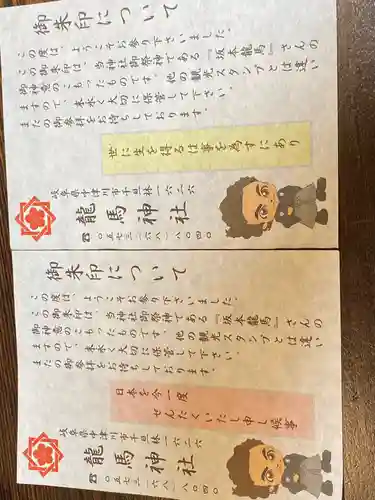 御朱印について
この度は、ようこそお参り下さいました。
この御朱印は、当神社御祭神である『坂本龍馬』さんの
御神意のこもったものです。他の観光スタンプとは違い
ますので、末永く大切に保管して下さい。
またの御参拝をお待ちしております。
世に生を得るは事を為すにあり
岐阜県中津川市千旦林一六二六
龍馬神社
☎〇五七三-二六八-一八〇四〇
御朱印について
この度は、ようこそお参り下さいました。
この御朱印は、当神社御祭神である『坂本龍馬』さんの
御神意のこもったものです。他の観光スタンプとは違い
ますので、末永く大切に保管して下さい。
またの御参拝をお待ちしております。
日本を今一度
せんたくいたし申し候事
岐阜県中津川市千旦林一六二六
龍馬神社